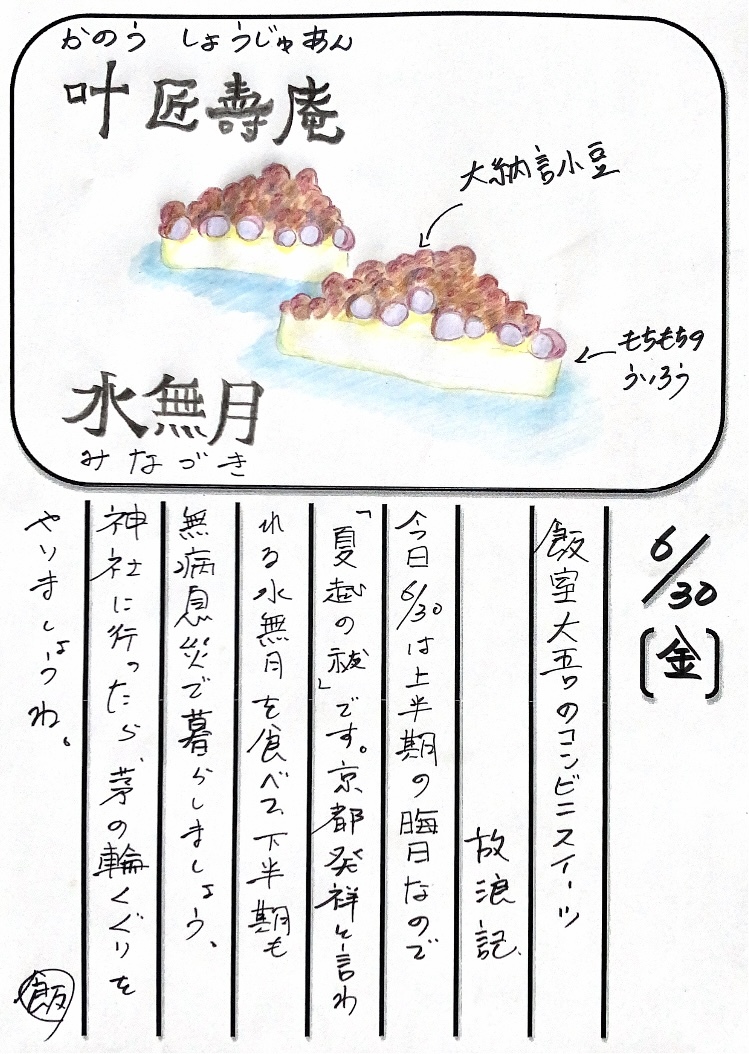 かのう しょうじゅあん
叶 匠壽庵
大納言小豆
もちもちの
ういろう
水無月
みなづき
6/30
[金]
飯室大吾のコンビニスイーツ
放浪記
今日6/30は上半期の晦日なので
「夏越の祓」です。京都発祥と言わ
れる水無月を食べて、下半期も
無病息災で暮らしましょう、
神社に行ったら、茅の輪くぐりを
やりましょうね。
飯